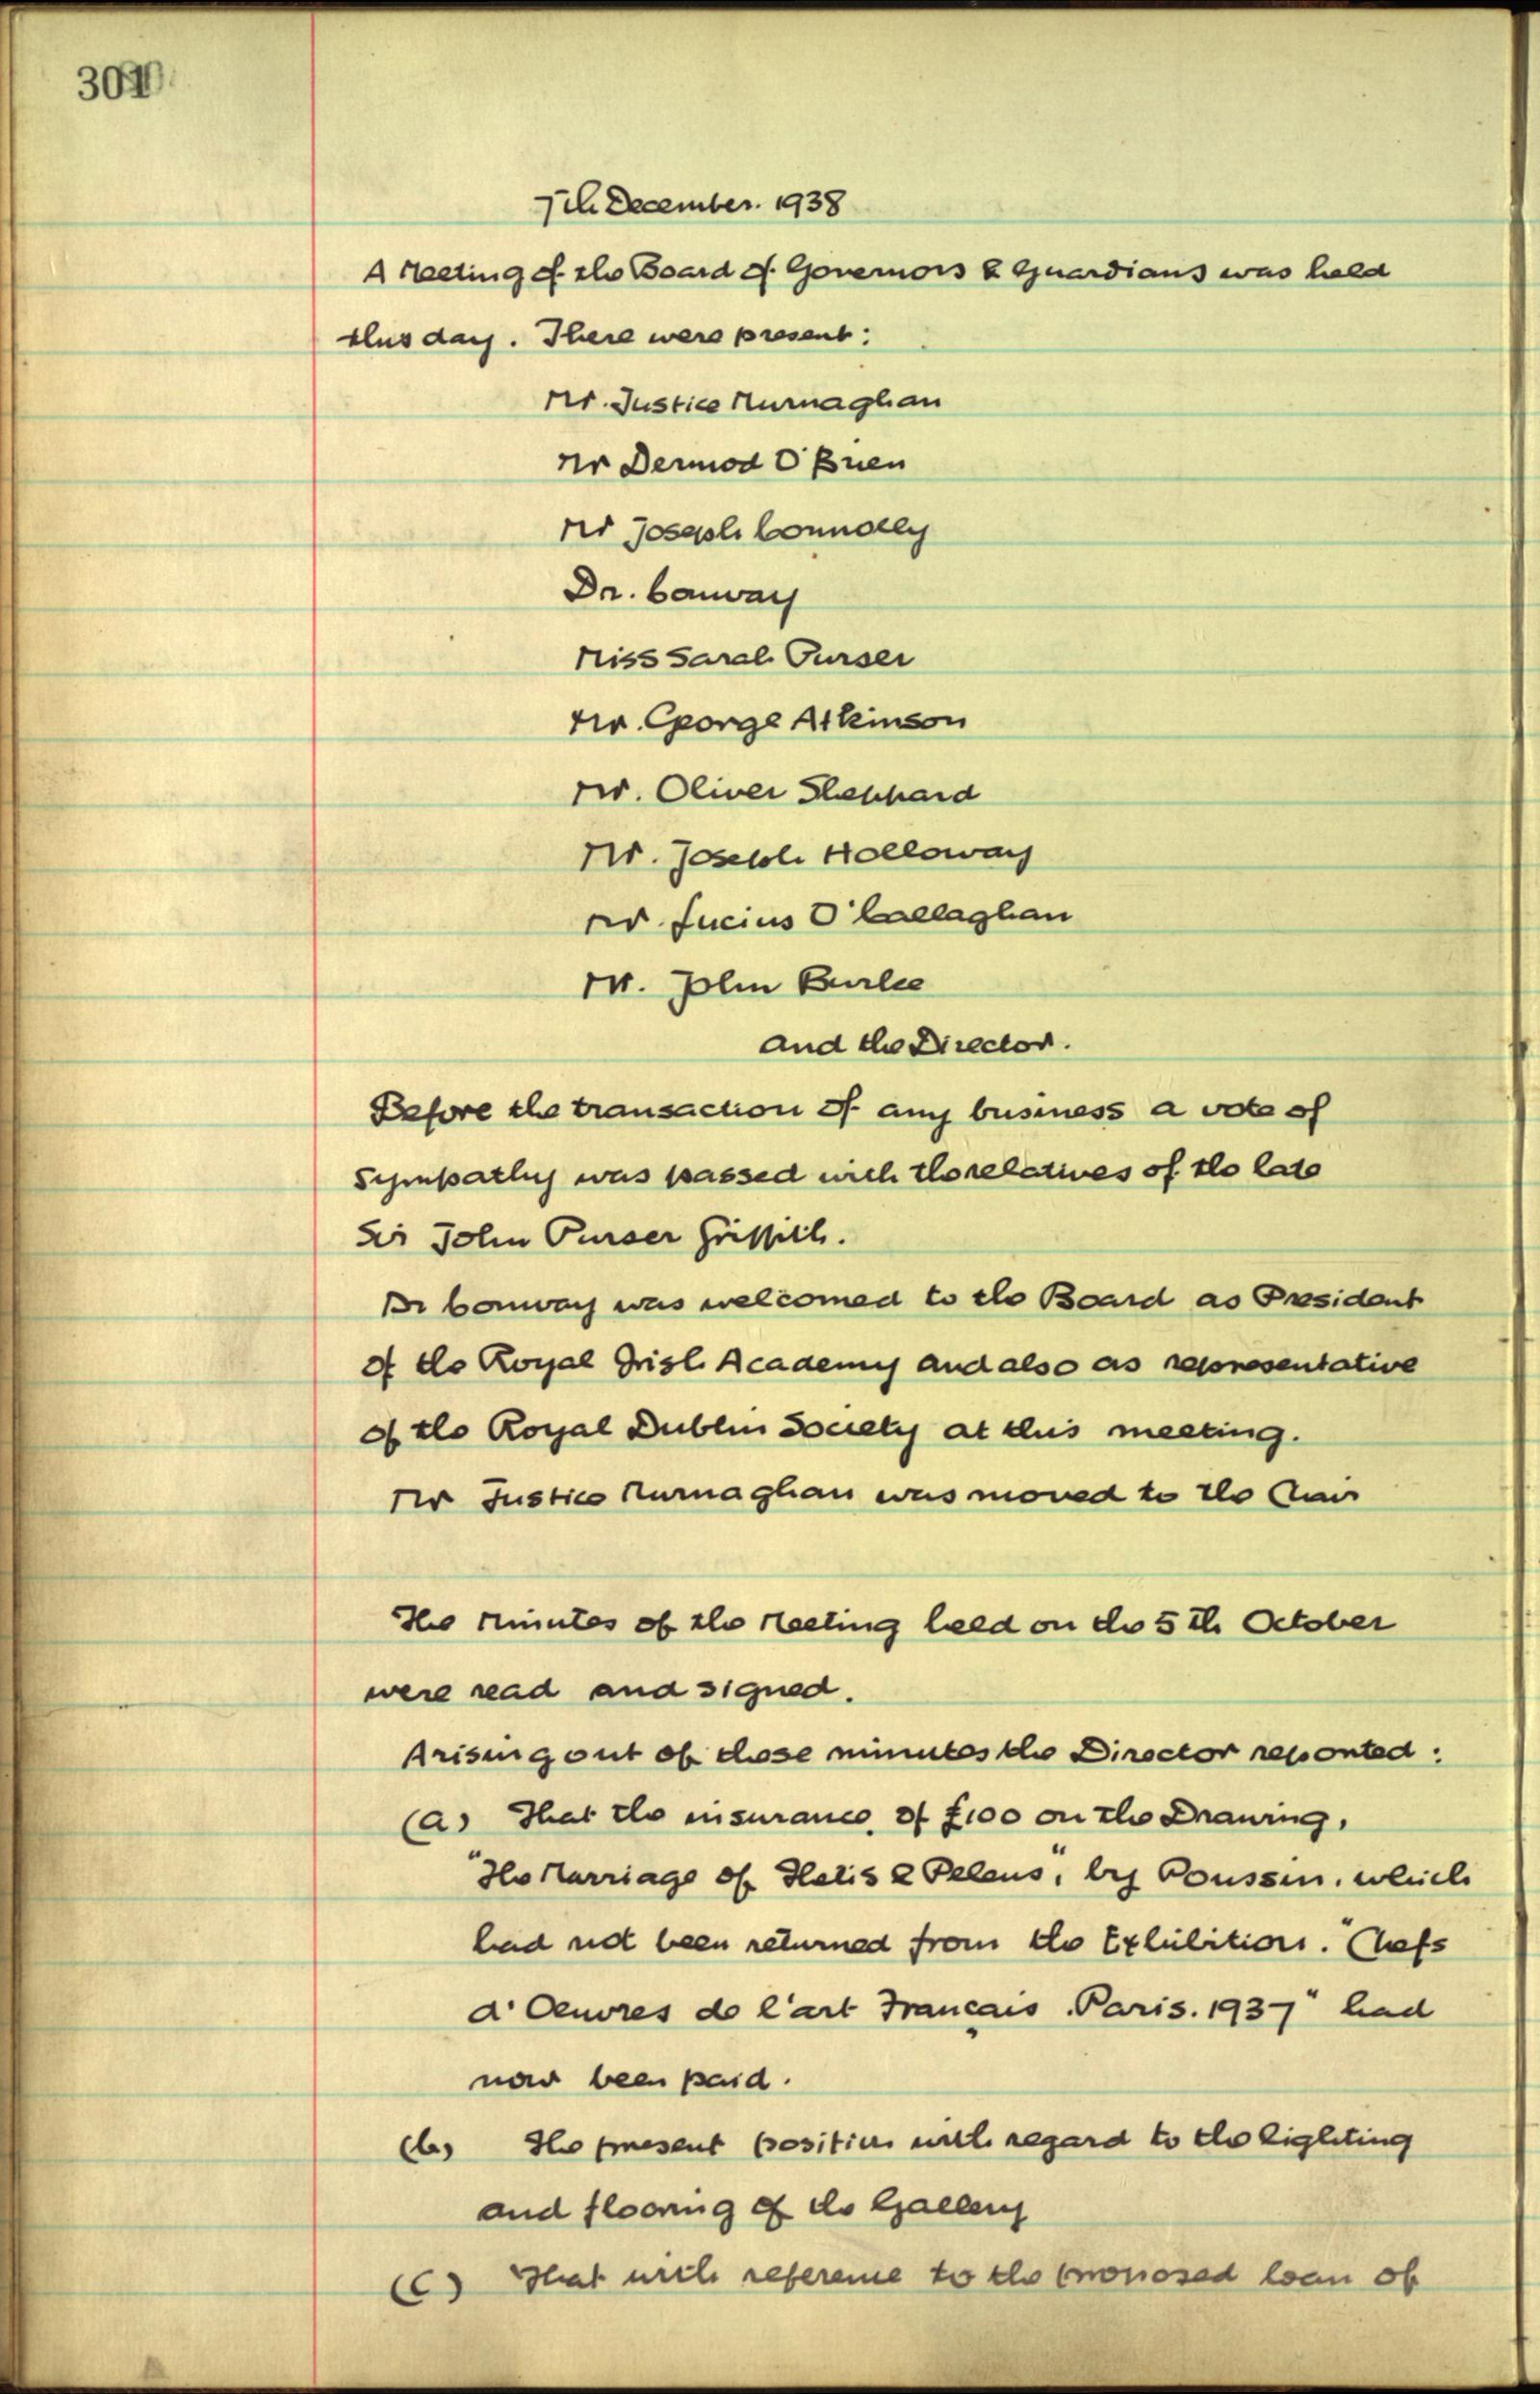 301
7th December. 1938
A Meeting of the Board of Governors & Guardians was held
this day. There were present:
Mr. Justice Murnaghan
Mr Dermod O'Brien
Mr Joseph Connolly
Dr. Conway
Miss Sarah Purser
Mr. George Atkinson
Mr. Oliver Sheppard
Mr. Joseph Holloway
Mr. Lucius O'Callaghan
Mr. John Burke
and the Director.
Before the transaction of any business a vote of
Sympathy was passed with the relatives of the late
Sir John Purser Griffith.
Dr Conway was welcomed to the Board as President
of the Royal Irish Academy and also as representative
of the Royal Dublin Society at this meeting.
Mr Justice Murnaghan was moved to the Chair
The Minutes of the Meeting held on the 5th October
were read and signed.
Arising out of those minutes the Director reported:
(a) That the insurance of £100 on the Drawing,
"The Marriage of Thetis & Peleus", by Poussin, which
had not been returned from the Exhibition. "Chefs
d'Oeuvres de l'art Français. Paris. 1937" had
now been paid.
(b) The present position with regard to the lighting
and flooring of the Gallery
(c) That with reference to the proposed loan of